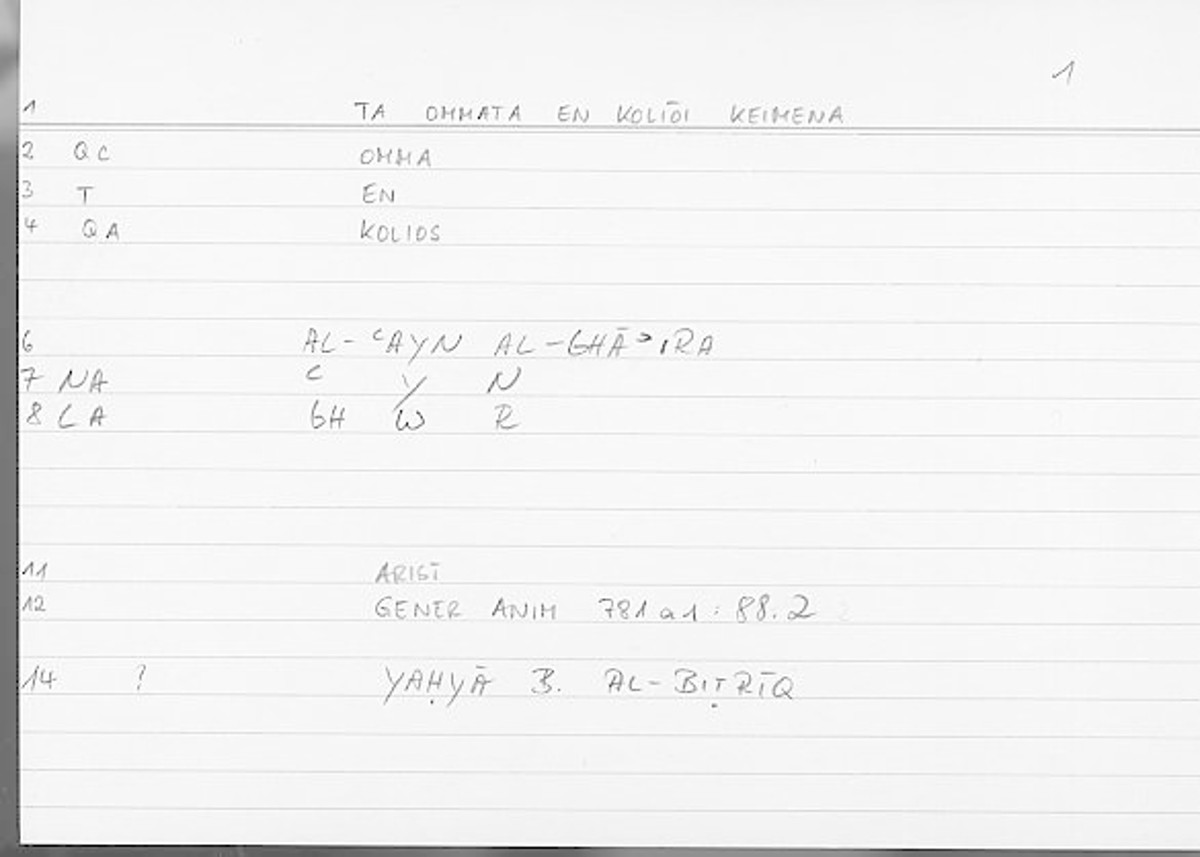 1
1 TA OMMATA EN KOLIŌI KEIMENA
2 QC OMMA
3 T EN
4 QA KOLIOS
6 AL-ʿAYN AL-GHĀʾIRA
7 NA ʿ Y N
8 LA GH W R
11 ARIST
12 GENER ANIM 781a1:88.2
14 ? YAḤYĀ B. AL-BIṬRĪQ